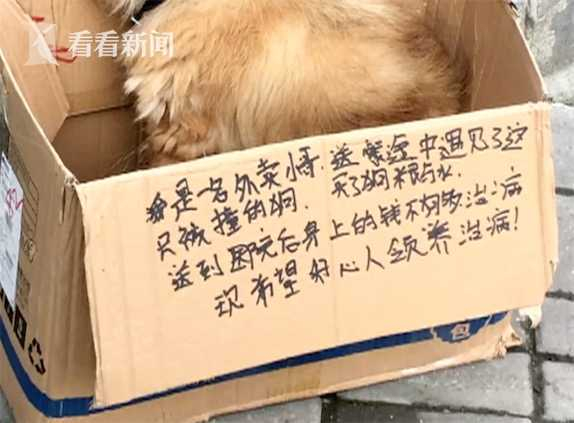 看看新闻
我是名外卖小哥.送餐途中遇见了这
只被撞的狗. 买了狗粮 水
送到医院后身上的钱不够治病
现希望好心人领养治病!
包